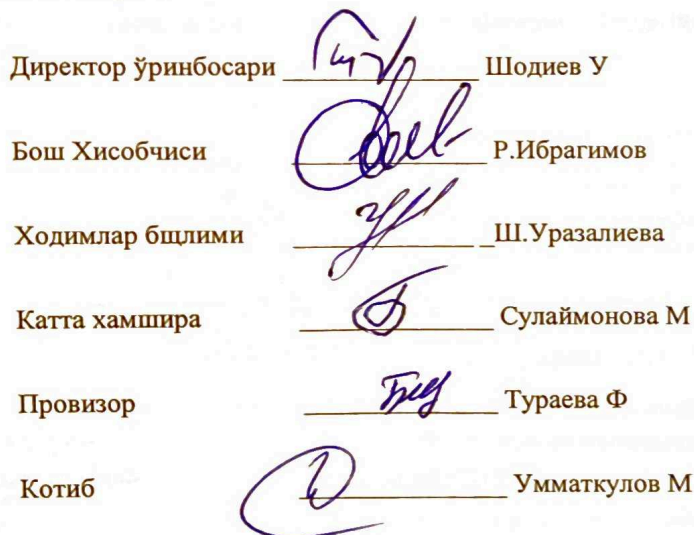 Директор ўринбосари ________________ Шодиев У
Бош Хисобчиси ________________ Р.Ибрагимов
Ходимлар бщлими ________________ Ш.Уразалиева
Катта хамшира ________________ Сулаймонова М
Провизор ________________ Тураева Ф
Котиб ________________ Умматкулов М